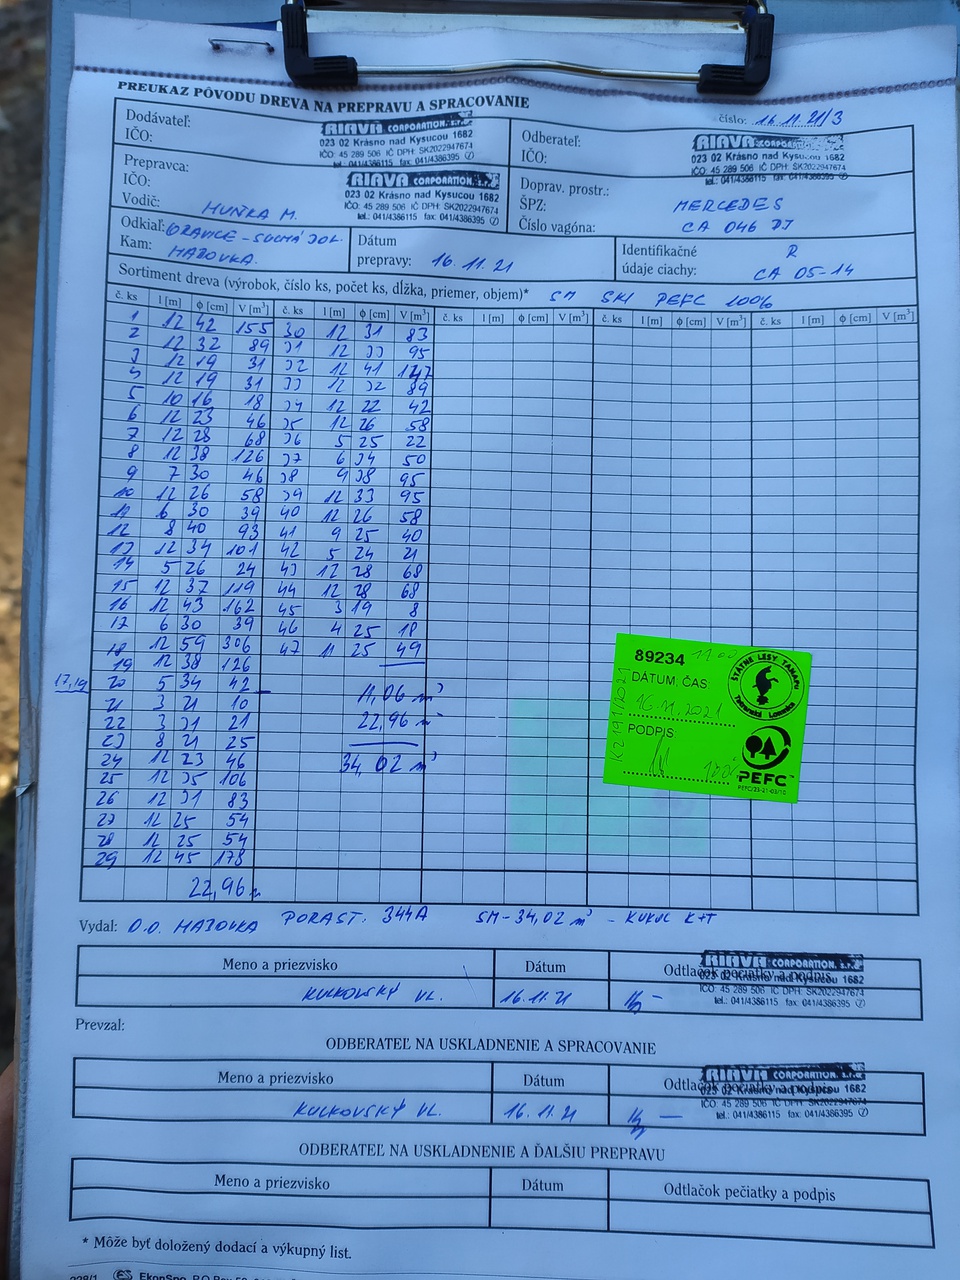 PREUKAZ PÔVODU DREVA NA PREPRAVU A SPRACOVANIE
číslo: 16.11.21/3
Dodávateľ: RIAVA CORPORATION, s.r.o.
IČO: 023 02 Krásno nad Kysucou 1682
IČO: 45 289 506 IČ DPH: SK2022947674
tel.: 041/4386115 fax: 041/4386395
Odberateľ: RIAVA CORPORATION
IČO: 023 02 Krásno nad Kysucou 1682
IČO: 45 289 506 IČ DPH: SK2022947674
tel.: 041/4386115 fax: 041/4386395
Prepravca: RIAVA CORPORATION, s.r.o.
IČO: 023 02 Krásno nad Kysucou 1682
IČO: 45 289 506 IČ DPH: SK2022947674
tel.: 041/4386115 fax: 041/4386395
Vodič: HUŇKA M.
Doprav. prostr.: MERCEDES
ŠPZ: CA 046 DJ
Číslo vagóna:
Odkiaľ: ORAVICE - SUCHÁ DOL.
Kam: HABOVKA.
Dátum
prepravy: 16.11.21
Identifikačné R
údaje ciachy: CA 05-14
Sortiment dreva (výrobok, číslo ks, počet ks, dĺžka, priemer, objem)* SM SKI PEFC 100%
č. ks l [m] ϕ [cm] V [m³] č. ks l [m] ϕ [cm] V [m³] č. ks l [m] ϕ [cm] V [m³] č. ks l [m] ϕ [cm] V [m³] č. ks l [m] ϕ [cm] V [m³]
1 12 42 155 30 12 31 83
2 12 32 89 31 12 33 95
3 12 19 31 32 12 41 147
4 12 19 31 33 12 32 89
5 10 16 18 34 12 22 42
6 12 23 46 35 12 26 58
7 12 28 68 36 5 25 22
8 12 38 126 37 6 34 50
9 7 30 46 38 9 38 95
10 12 26 58 39 12 33 95
11 6 30 39 40 12 26 58
12 8 40 93 41 9 25 40
13 12 34 101 42 5 24 21
14 5 26 24 43 12 28 68
15 12 37 119 44 12 28 68
16 12 43 162 45 3 19 8
17 6 30 39 46 4 25 18
18 12 59 306 47 11 25 49
19 12 38 126
17,19 20 5 34 42 11,06 m³
21 3 21 10
22 3 31 21 22,96 m³
23 8 21 25
24 12 23 46 34,02 m³
25 12 35 106
26 12 31 83
27 12 25 54
28 12 25 54
29 12 45 178
22,96
89234
DÁTUM, ČAS:
16.11.2021
PODPIS:
ŠTÁTNE LESY TANAPU
Tatranská Lomnica
PEFC
PEFC/23-21-03/10
Vydal: O.O. HABOVKA PORAST. 344A SM-34,02 m³ - KUKUC K+T
Meno a priezvisko Dátum Odtlačok pečiatky a podpis
KULKOVSKÝ VL. 16.11.21
RIAVA CORPORATION, s.r.o.
023 02 Krásno nad Kysucou 1682
IČO: 45 289 506 IČ DPH: SK2022947674
tel.: 041/4386115 fax: 041/4386395
Prevzal:
ODBERATEĽ NA USKLADNENIE A SPRACOVANIE
Meno a priezvisko Dátum Odtlačok pečiatky a podpis
KULKOVSKÝ VL. 16.11.21
RIAVA CORPORATION, s.r.o.
023 02 Krásno nad Kysucou 1682
IČO: 45 289 506 IČ DPH: SK2022947674
tel.: 041/4386115 fax: 041/4386395
ODBERATEĽ NA USKLADNENIE A ĎALŠIU PREPRAVU
Meno a priezvisko Dátum Odtlačok pečiatky a podpis
* Môže byť doložený dodací a výkupný list.